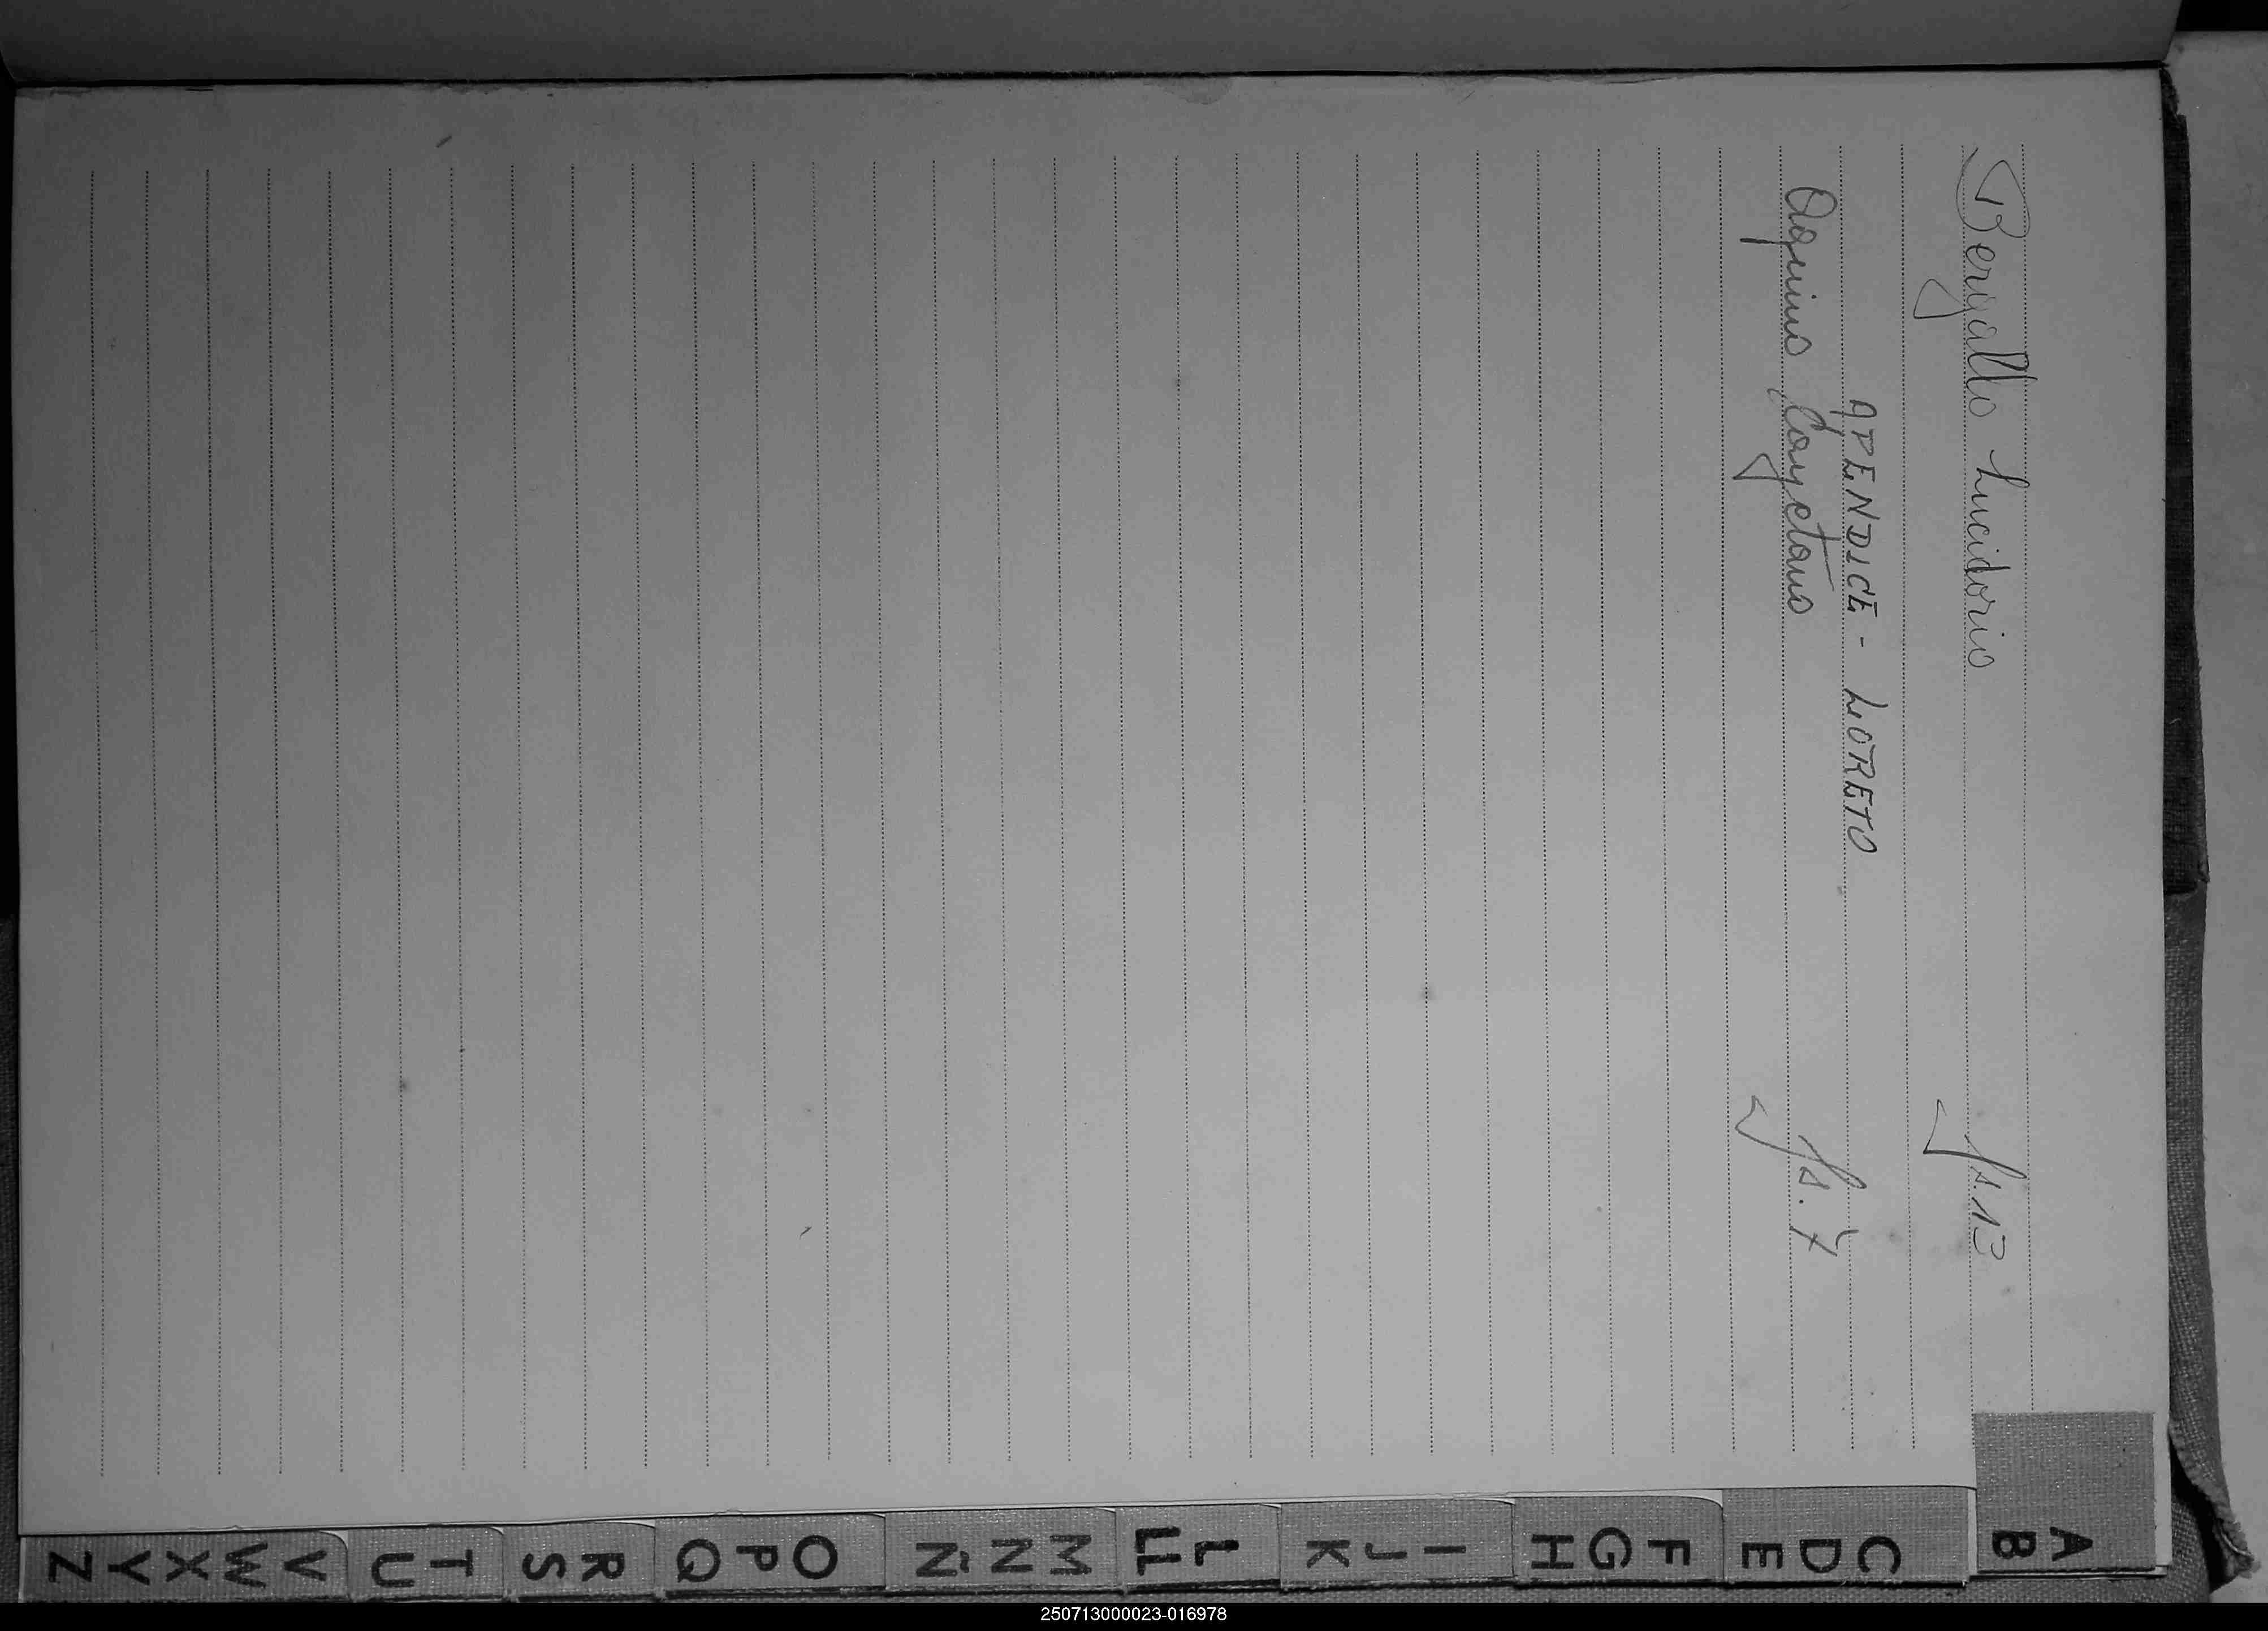 Bergallo Lucidorio fs 13
APENDICE - LORETO
Aquino Cayetano fs. 7
A B
C D E
F G H
I J K
L LL
M N Ñ
O P Q
R S
T U
V W X Y Z
250713000023-016978